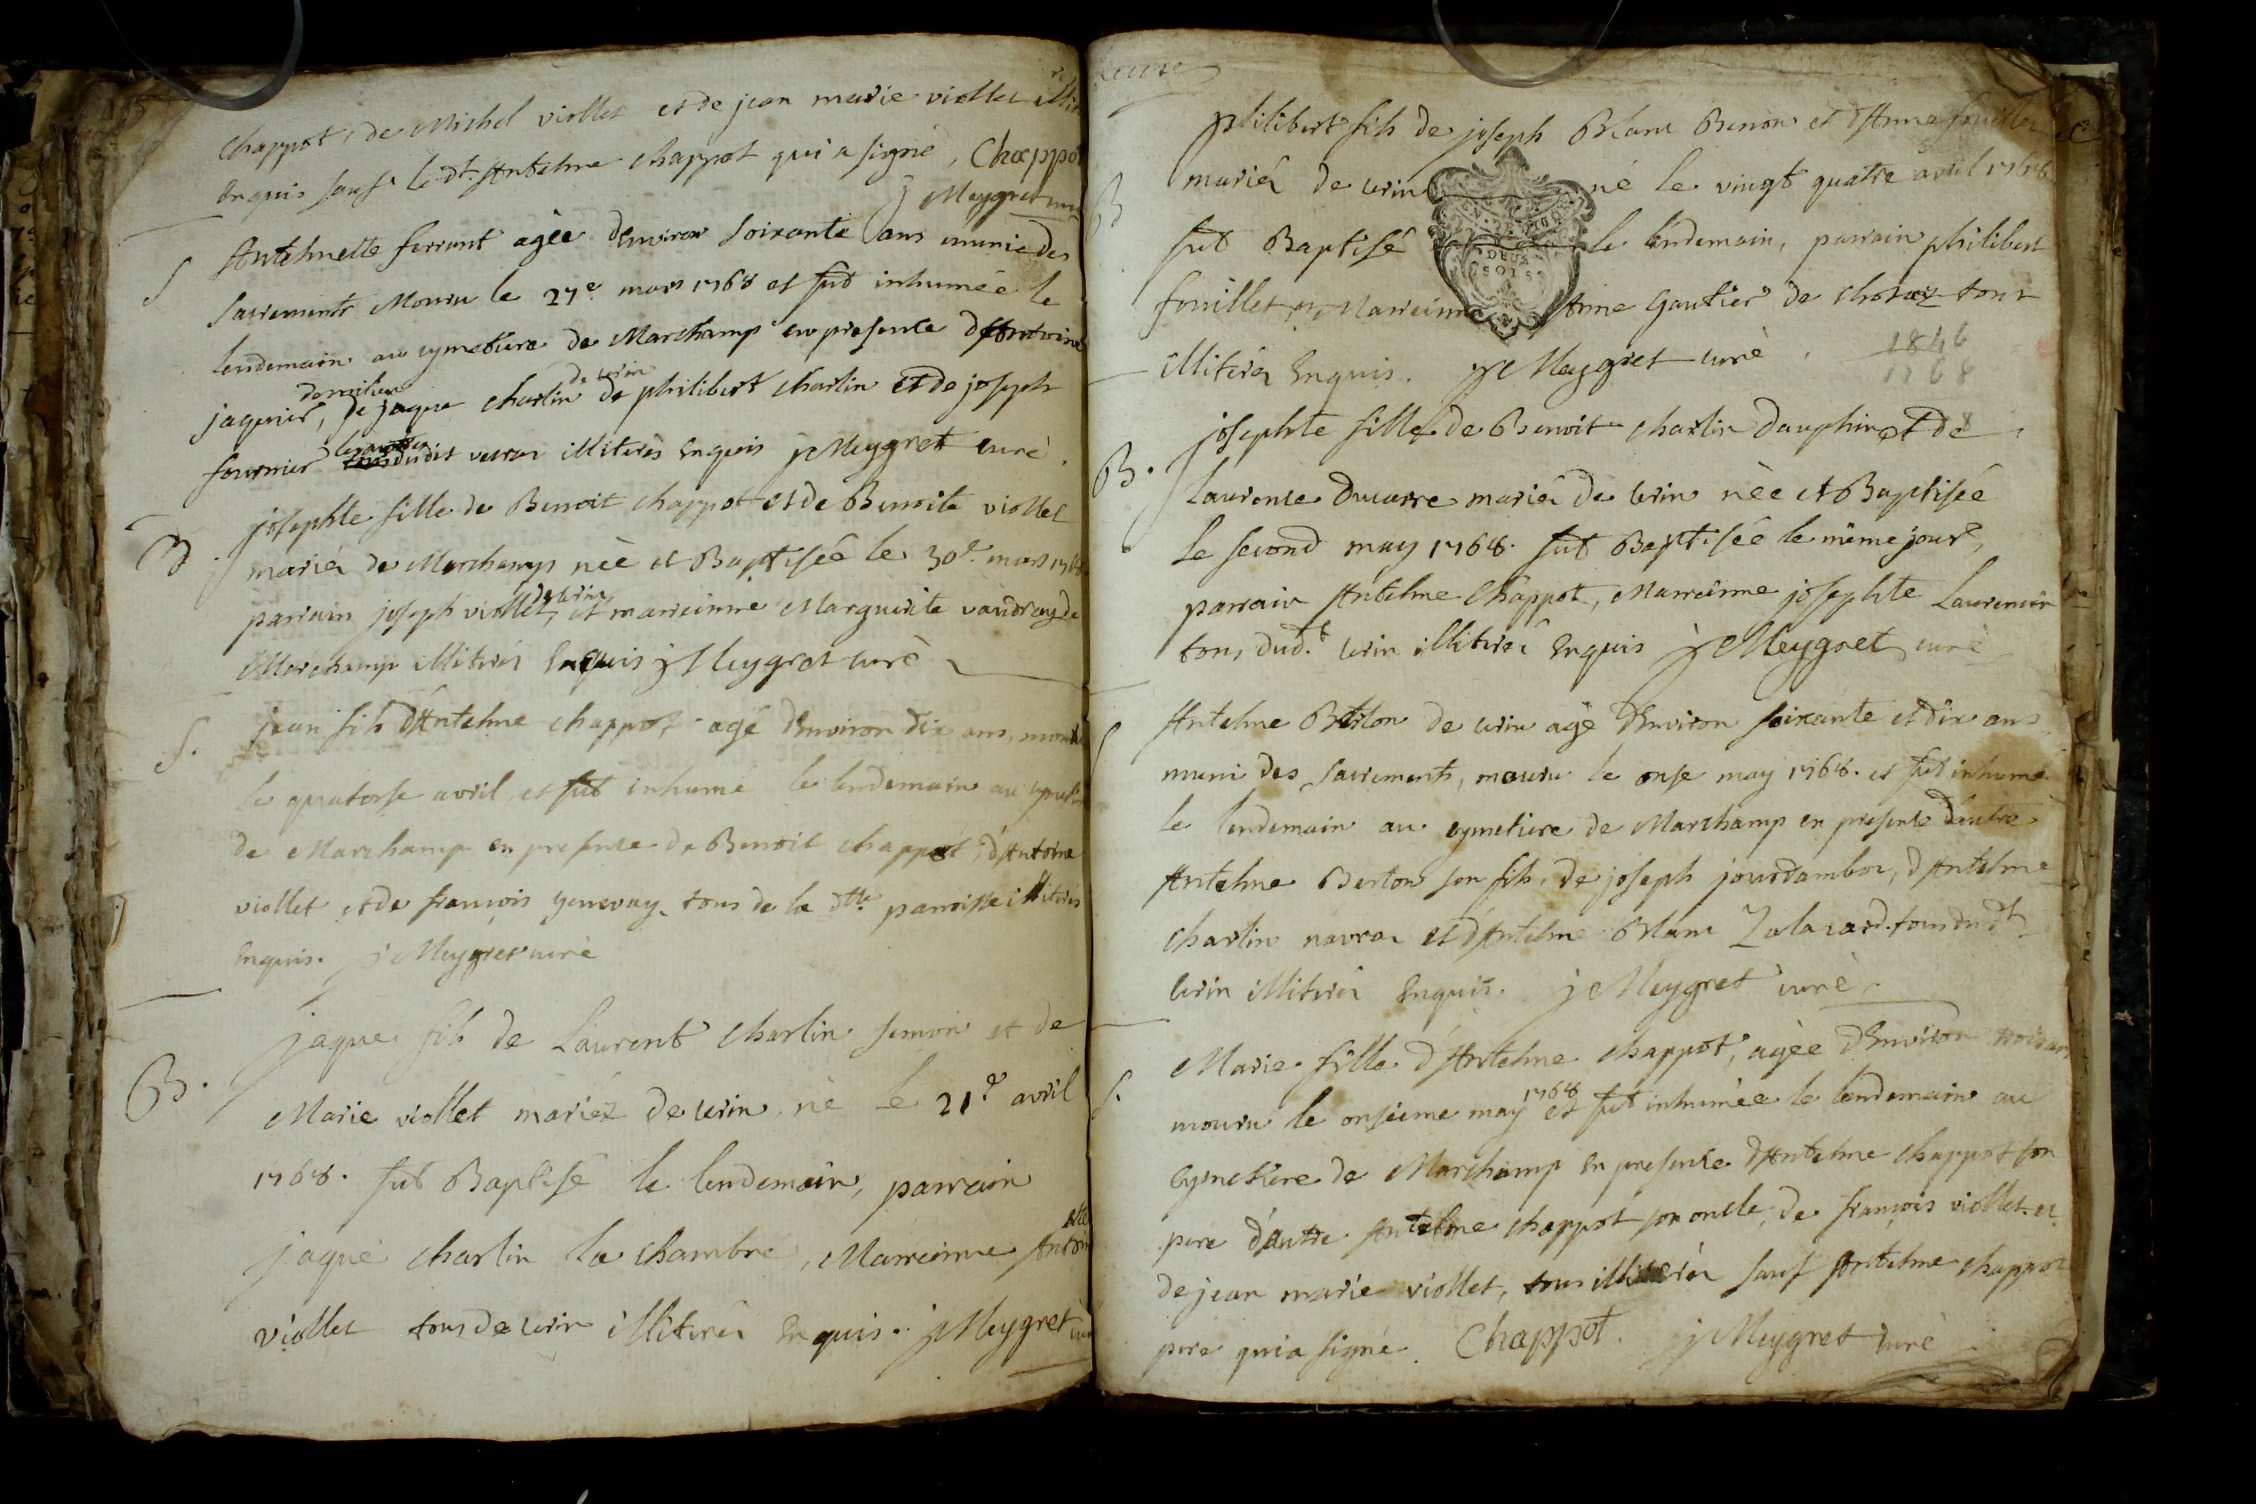 chappot, de Michel viollet et de jean marie viollet illite
rés
enquis sauf led.t Antelme chappot qui a signé, Chappot
j Meygret curé
S Antelmette ferrant agée d'Environ soixante ans munie des
sacrements Mouru le 27e mars 1768 et fut inhumée le
lendemain au cymetiere de Marchamp en presence d'Antoine
jaquier, de jaque charlin de cerin de philibert charlin et de joseph
fournier les autres dudit illiterés Enquis j Meygret curé.
B josephte fille de Benoit chappot et de Benoite viollet
mariés de Marchamp née et Baptisée le 30e mars 1768
parrain joseph viollet, de cerin et marreinne Marguerite vaudray de
Marchamp illiterés Enquis j Meygret curé
S. jean fils d'Antelme chappot agé d'Environ dix ans, mouru
le quatorse avril et fut inhumé le lendemain au cymetiere
de Marchamp en presence de Benoit chappot, d'Antoine
viollet et de françois genevay tous de la d.tte parroisse illiterés
Enquis. j Meygret curé
B. jaque fils de Laurent charlin et de
Marie viollet mariéz de cerin né le 21e avril
1768. fut Baptisé le lendemain, parrain
jaque charlin la chambre, Marreinne Antoinette
viollet tous de cerin illiterés Enquis. j Meygret curé
B philibert fils de joseph Blanc Benon et d'Anne fouillet
mariés de cerin né le vingt quatre avril 1768
fut Baptisé le lendemain, parrain philibert
DEUX
SOLS
fouillet, Marreinne Anne Gautier de tous
illiterés Enquis. j Meygret curé.
1846
1768
78
B. josephte fille de Benoit charlin Dauphin et de
Laurence Ducarre mariés de cerin née et Baptisée
le second may 1768. fut Baptisée le même jour,
parrain Antelme Chappot, Marreinne josephte Laurencin
tous dud.t cerin illiterés Enquis j Meygret curé
S Antelme Berton de cerin agé d'Environ soixante et dix ans
muni des sacrements, mouru le onse may 1768. et fut inhumé
le lendemain au cymetiere de Marchamp en presence d'autre
Antelme Berton son fils, de joseph jourdambon, d'Antelme
charlin navroz et d'Antelme Blanc tous dud.t
cerin illiterés Enquis. j Meygret curé.
S. Marie fille d'Antelme chappot, agée d'Environ trois ans
mouru le onsieme may 1768 et fut inhumée le lendemain au
cymetiere de Marchamp en presence d'Antelme chappot son
pere d'autre Antelme chappot son oncle, de françois viollet et
de jean marie viollet, tous illiterés sauf Antelme chappot
pere qui a signé. Chappot. j Meygret curé